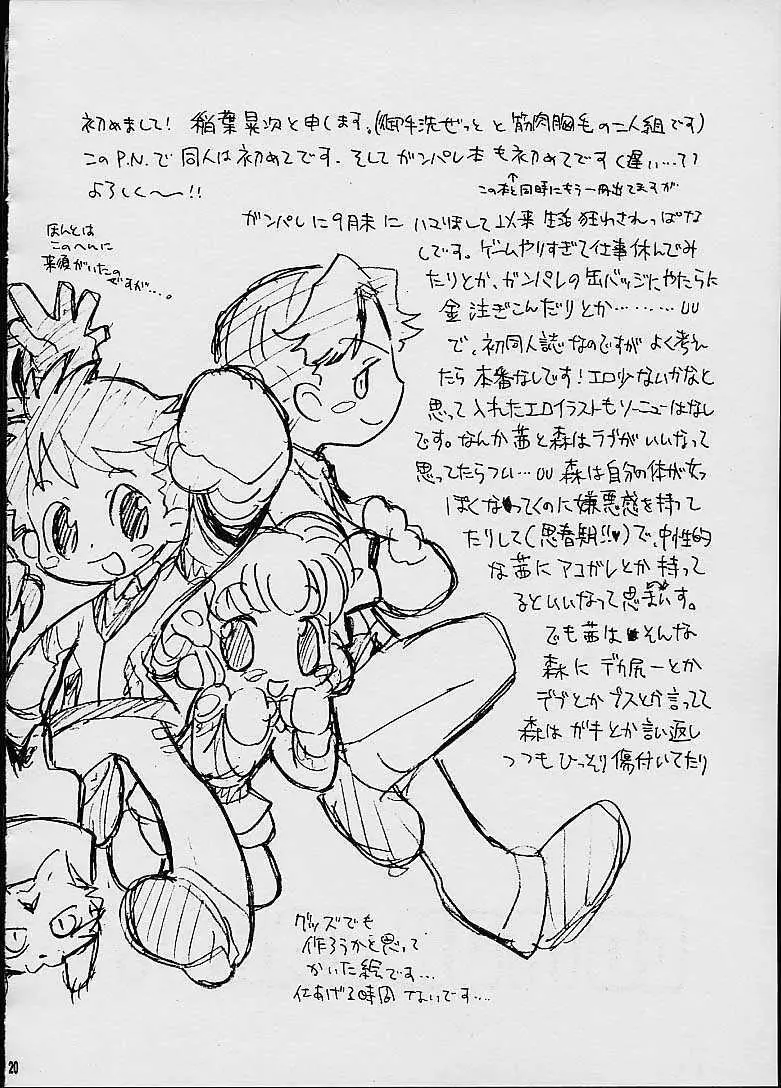 初めまして! 稲葉晃次と申します。(御手洗ぜっと と 筋肉胸毛の二人組です)
このP.N.で同人は初めてです。そしてガンパレ本も初めてです(遅い…??
↑
この本と同時にもう一冊出てますが
よろしく〜〜!!
ガンパレに9月末に ハマりまして以来 生活狂わされっぱな
しです。ゲームやりすぎて仕事休んでみ
たりとか、ガンパレの缶バッジにやたらに
金注ぎこんだりとか………UU
で、初同人誌なのですがよく考え
たら本番なしです!エロ少ないかなと
思って入れたエロイラストもソーニューはなし
です。なんか茜と森はラブがいいなって
思ってたらつい…UU 森は自分の体が女っ
ぽくなってくのに嫌悪感を持って
たりして(思春期!!♥)で、中性的
な茜にアコガレとか持って
るといいなって思います。
でも茜はそんな
森にデカ尻ーとか
デブとかブスとか言ってて
森はガキとか言い返し
つつもひっそり傷付いてたり
ほんとは
このへんに
来須がいたの
ですが…。
グッズでも
作ろうかと思って
かいた絵です…
仕あげる時間ないです…
20